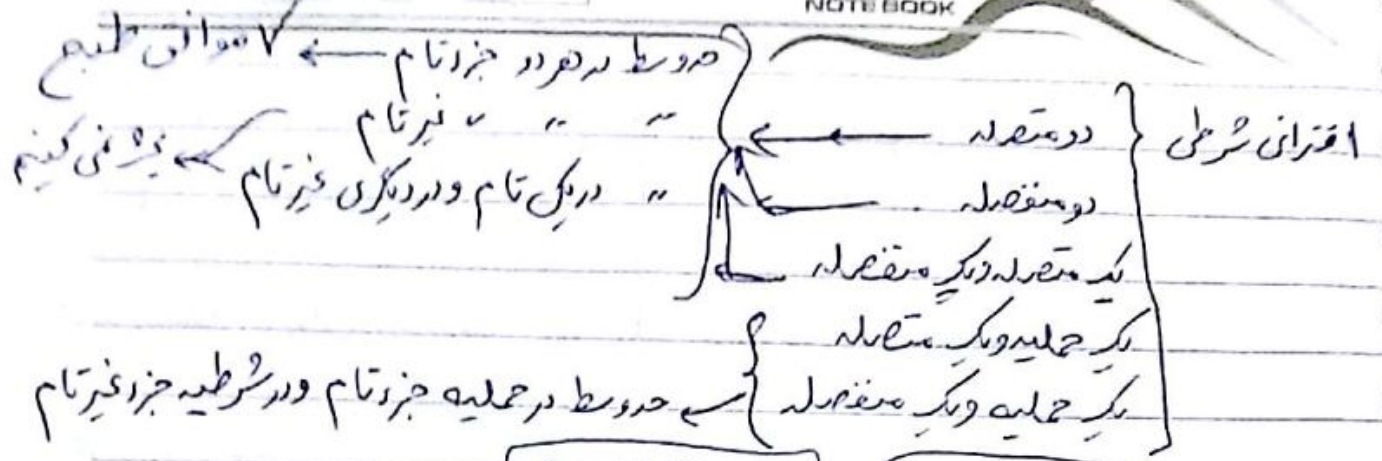 NOTE BOOK
اقترانی شرطی
دو متصله
دو منفصله
یک متصله و یک منفصله
یک حملیه و یک متصله
یک حملیه و یک منفصله
حد وسط در هر دو جزء تام ← ✓ موافق طبع
〃 〃 〃 غیر تام
〃 در یکی تام و در دیگری غیر تام ← بحث نمی کنیم
حد وسط در حملیه جزء تام و در شرطیه جزء غیر تام